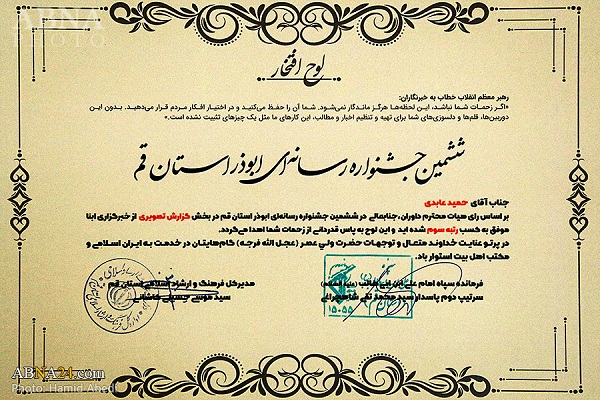 ABNA
PHOTO
لوح افتخار
رهبر معظم انقلاب خطاب به خبرنگاران:
«اگر زحمات شما نباشد، این لحظه‌ها هرگز ماندگار نمی‌شود. شما آن را حفظ می‌کنید و در اختیار افکار مردم قرار می‌دهید. بدون این
دوربین‌ها، قلم‌ها و دلسوزی‌های شما برای تهیه و تنظیم اخبار و مطالب، این کارهای ما مثل یک چیزهای تثبیت نشده است.»
ششمین جشنواره رسانه‌ای ابوذر استان قم
جناب آقای حمید عابدی
بر اساس رای هیات محترم داوران، جنابعالی در ششمین جشنواره رسانه‌ای ابوذر استان قم در بخش گزارش تصویری از خبرگزاری ابنا
موفق به کسب رتبه سوم شده اید و این لوح به پاس قدردانی از زحمات شما اهدا می‌گردد.
در پرتو عنایت خداوند متعال و توجهات حضرت ولی عصر (عجل الله فرجه) گام‌هایتان در خدمت به ایران اسلامی و
مکتب اهل بیت استوار باد.
فرمانده سپاه امام علی ابن ابی طالب (علیه السلام)
سرتیپ دوم پاسدار سید محمد تقی شاهچراغی
۱۵۰۵۵
مدیرکل فرهنگ و ارشاد اسلامی استان قم
سید موسی حسینی کاشانی
ABNA24.com
Photo: Hamid Abedi